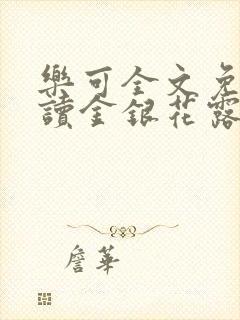 樂可全文免
讀金銀花露
詹華